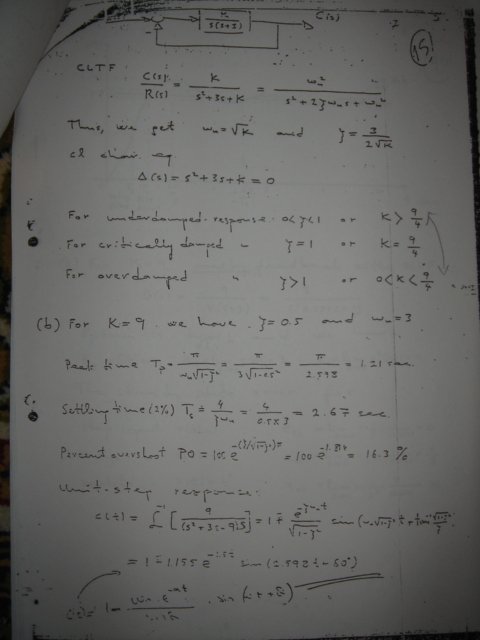 K
s(s+3)
C(s)
15
CLTF
C(s)/R(s) = K/(s²+3s+K) = ωn²/(s²+2ζωns+ωn²)
Thus, we get ωn = √K and ζ = 3/(2√K)
cl char eq
Δ(s) = s²+3s+K = 0
For underdamped response: 0<ζ<1 or K > 9/4
For critically damped " ζ = 1 or K = 9/4
For overdamped " ζ>1 or 0<K<9/4
(b) For K = 9 we have ζ = 0.5 and ωn = 3
Peak time Tp = π/(ωn√(1-ζ²)) = π/(3√(1-0.5²)) = π/2.598 = 1.21 sec.
c.
Settling time (2%) Ts = 4/(ζωn) = 4/(0.5×3) = 2.67 sec
Percent overshoot PO = 100 e^-(ζ/√(1-ζ²))π = 100 e^-1.84 = 16.3 %
Unit-step response:
c(t) = ℒ⁻¹ [9/((s²+3s+9)s)] = 1 - e^-ζωnt/√(1-ζ²) sin(ωn√(1-ζ²)t + tan⁻¹ √(1-ζ²)/ζ)
= 1 - 1.155 e^-1.5t sin(2.598t - 60°)
c(t) = 1 -